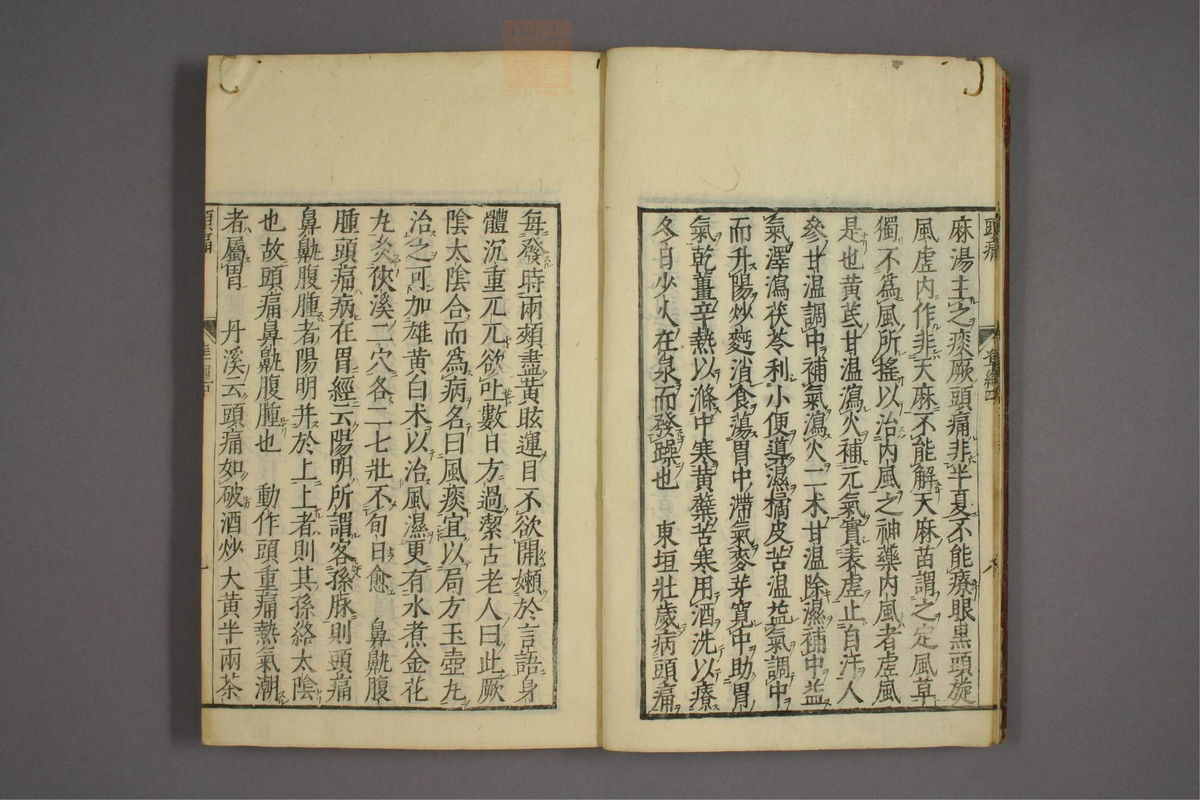 頭痛
麻湯主之痰厥頭痛非半夏不能療眼黒頭旋
風虗内作非天麻不能解天麻苗謂之定風草
獨不爲風所搖以治内風之神藥内風者虗風
是也黄芪甘温瀉火補元氣實表虗止自汗人
參甘温調中補氣瀉火二朮甘温除濕補中益
氣澤瀉茯苓利小便導濕橘皮苦温益氣調中
而升陽炒麯消食蕩胃中滯氣麥芽寛中助胃
氣乾薑辛熱以滌中寒黄蘗苦寒用酒洗以療
冬日少火在泉而發躁也 東垣壯歳病頭痛
每發時兩頰盡黄眩運目不欲開嬾於言語身
體沉重兀兀欲吐數日方過潔古老人曰此厥
陰太陰合而爲病名曰風痰宜以局方玉壺丸
治之可加雄黄白朮以治風濕更有水煮金花
丸灸俠溪二穴各二七壯不旬日愈 鼻鼽腹
腫頭痛病在胃經云陽明所謂客孫脉則頭痛
鼻鼽腹腫者陽明并於上上者則其孫絡太陰
也故頭痛鼻鼽腹腫也 動作頭重痛熱氣潮
者屬胃 丹溪云頭痛如破酒炒大黄半兩茶
頭痛